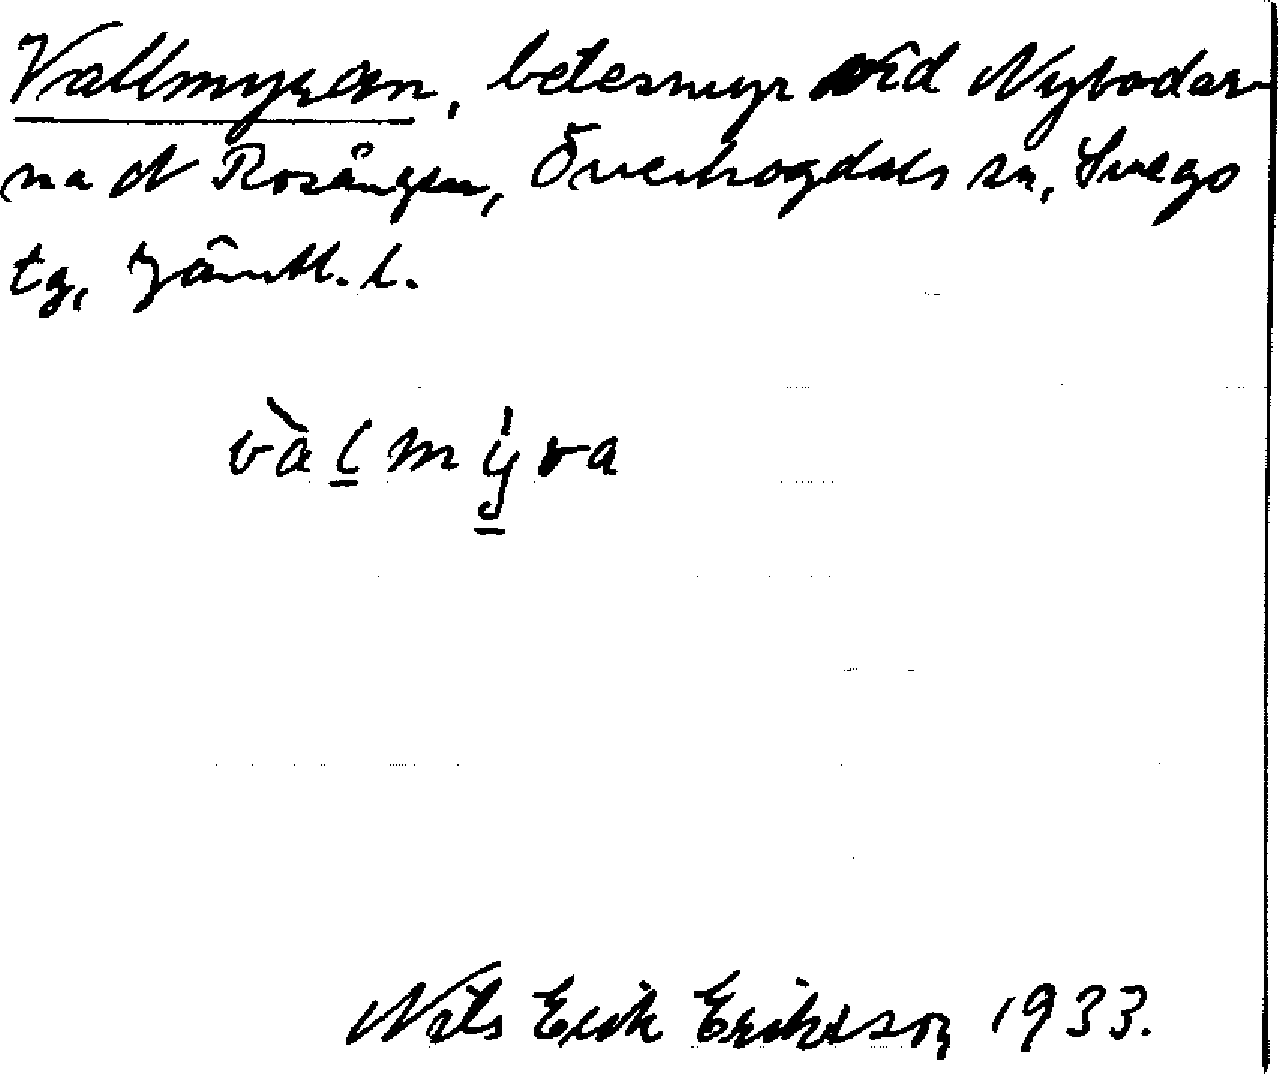 Vallmyran, betesmyr vid Nybodar-
na N Rosången, Överhogdals sn, Svegs
tg, Jämtl. l.
vàlmýra
Nils Erik Eriksson 1933.